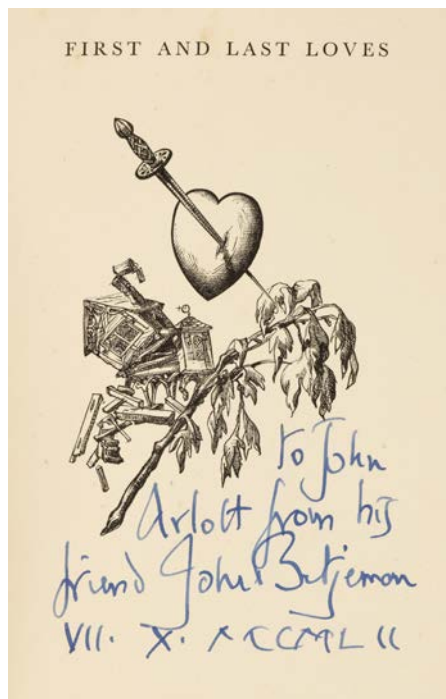 FIRST AND LAST LOVES
to John
Arlott from his
friend John Betjeman
VII. X.